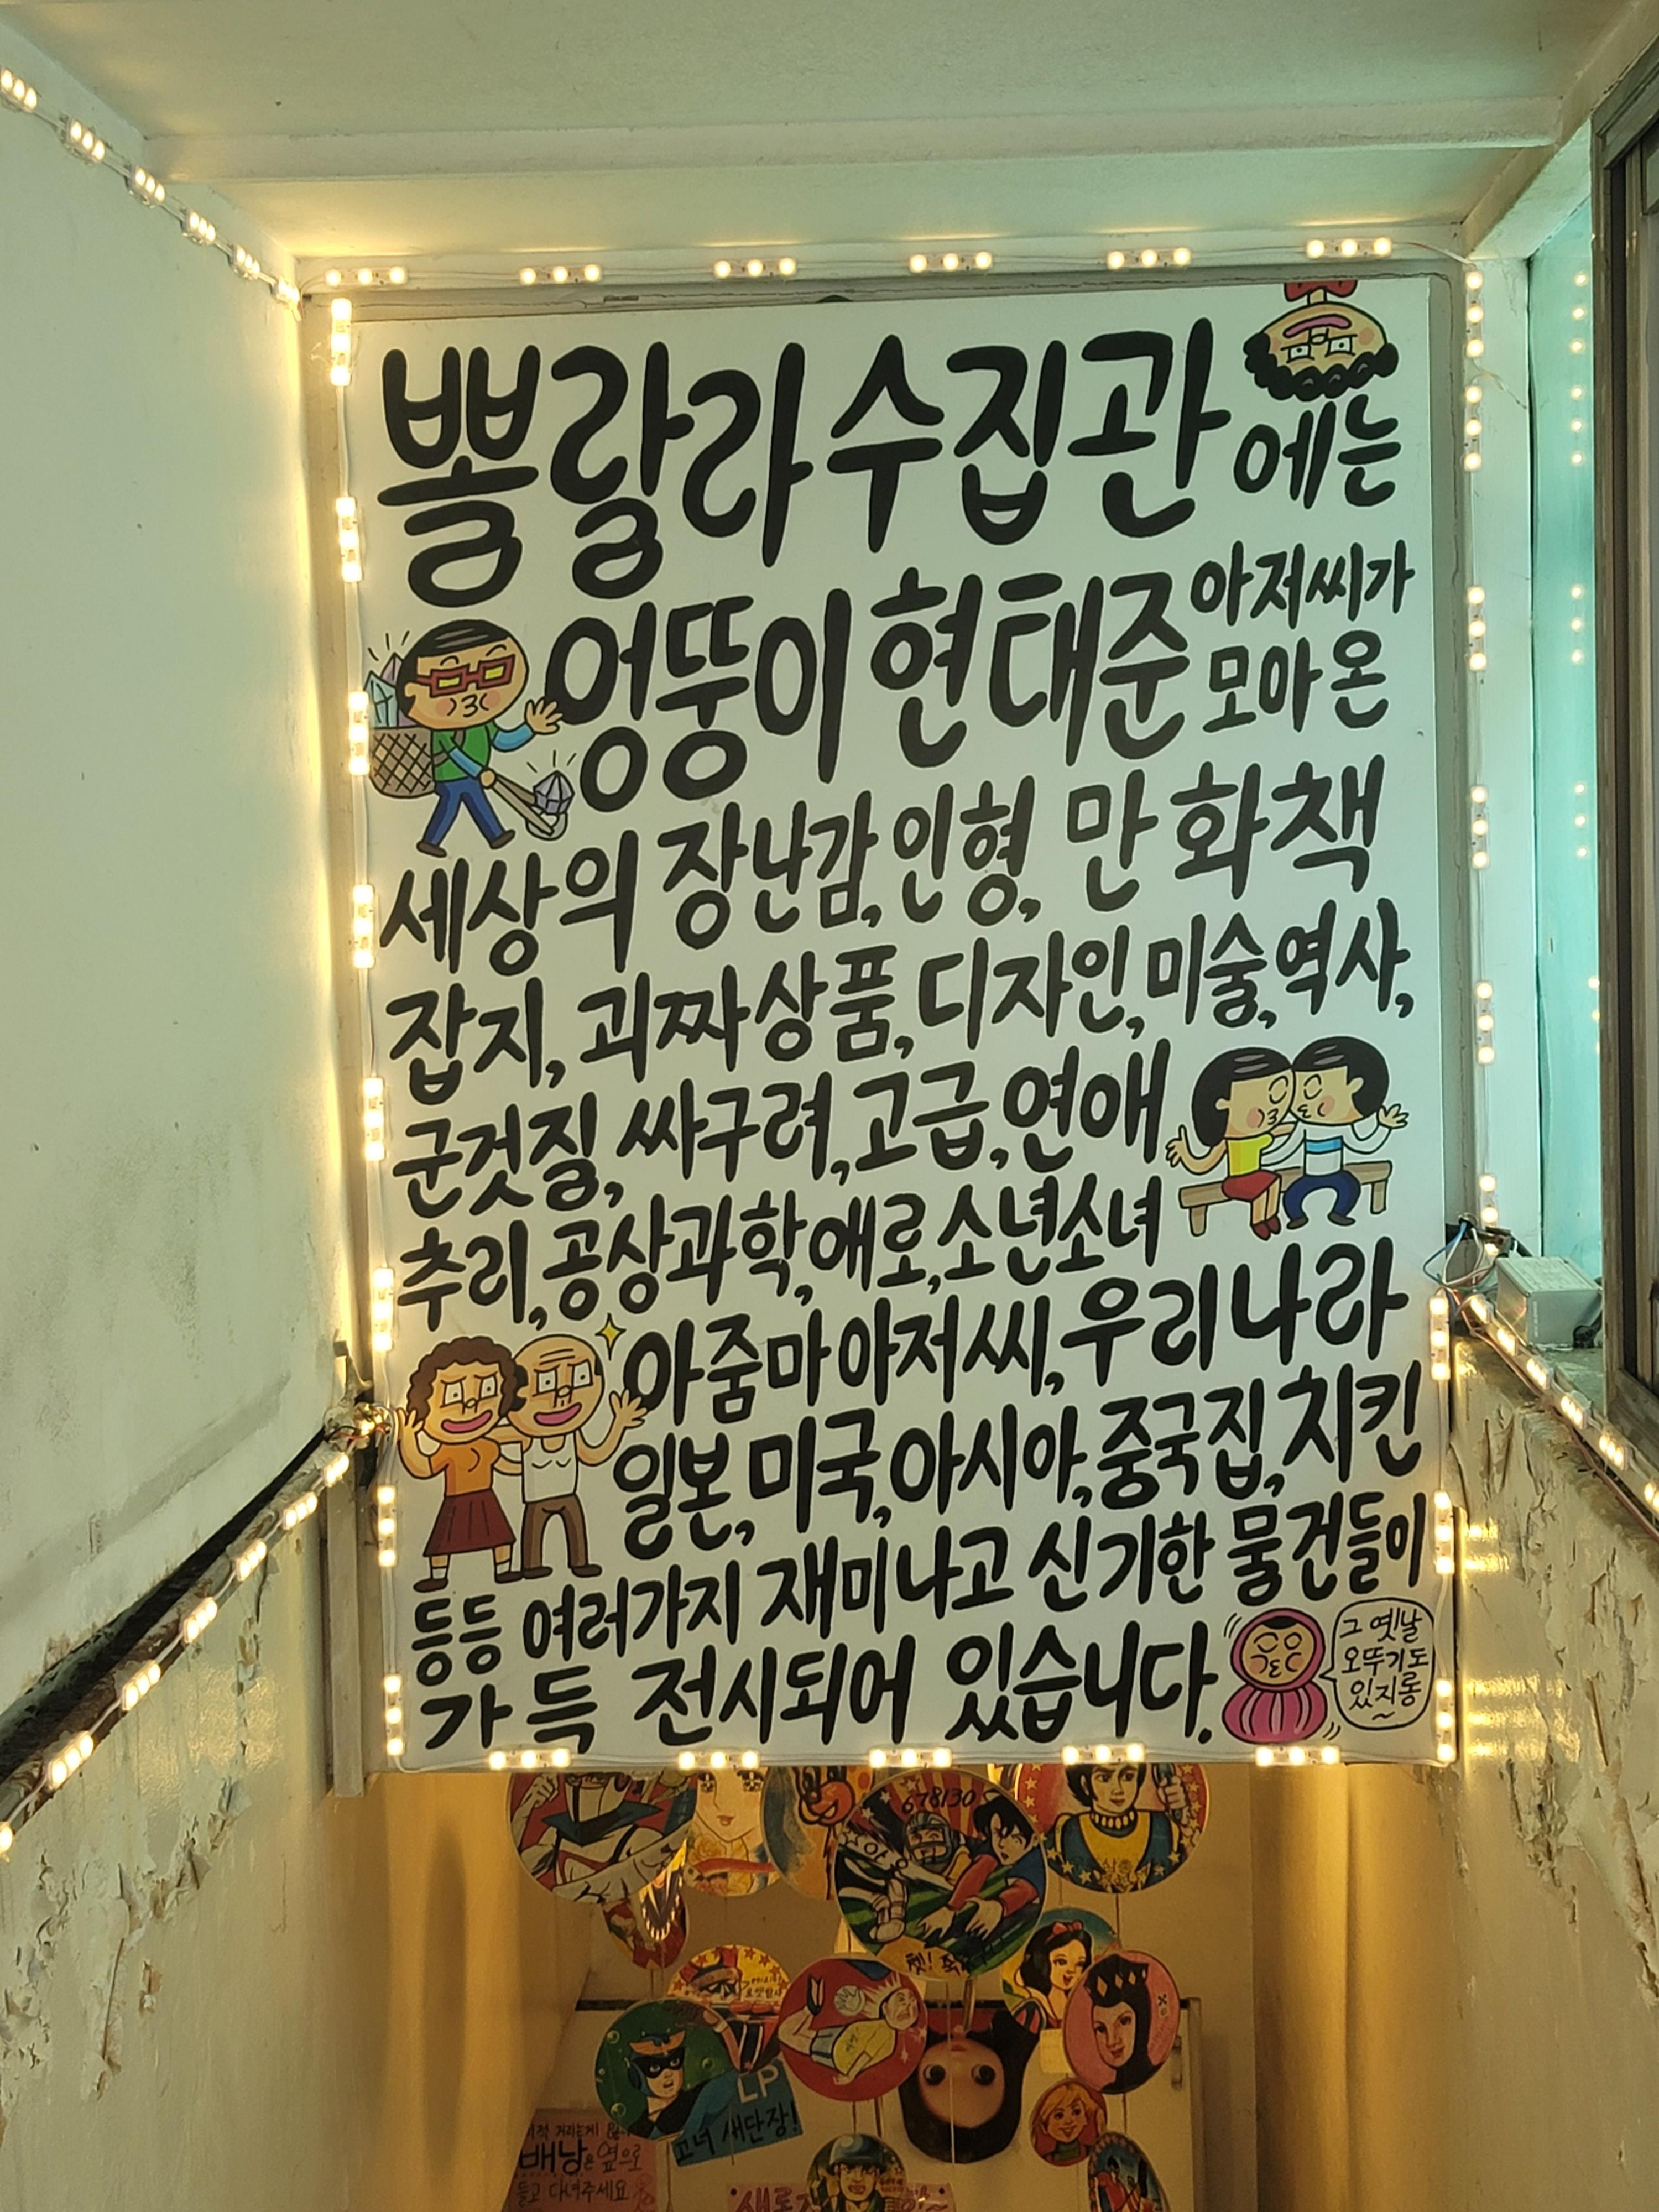 뽈랄라수집관에는
엉뚱이 현태준 아저씨가
모아온
세상의 장난감, 인형, 만화책
잡지, 괴짜상품, 디자인, 미술, 역사,
군것질, 싸구려, 고급, 연애
추리, 공상과학, 애로, 소년소녀
아줌마 아저씨, 우리나라
일본, 미국, 아시아, 중국집, 치킨
등등 여러가지 재미나고 신기한 물건들이
가득 전시되어 있습니다.
그 옛날
오뚜기도
있지롱
~
678130
LP
코너 새단장!
배낭은 옆으로
들고 다녀주세요